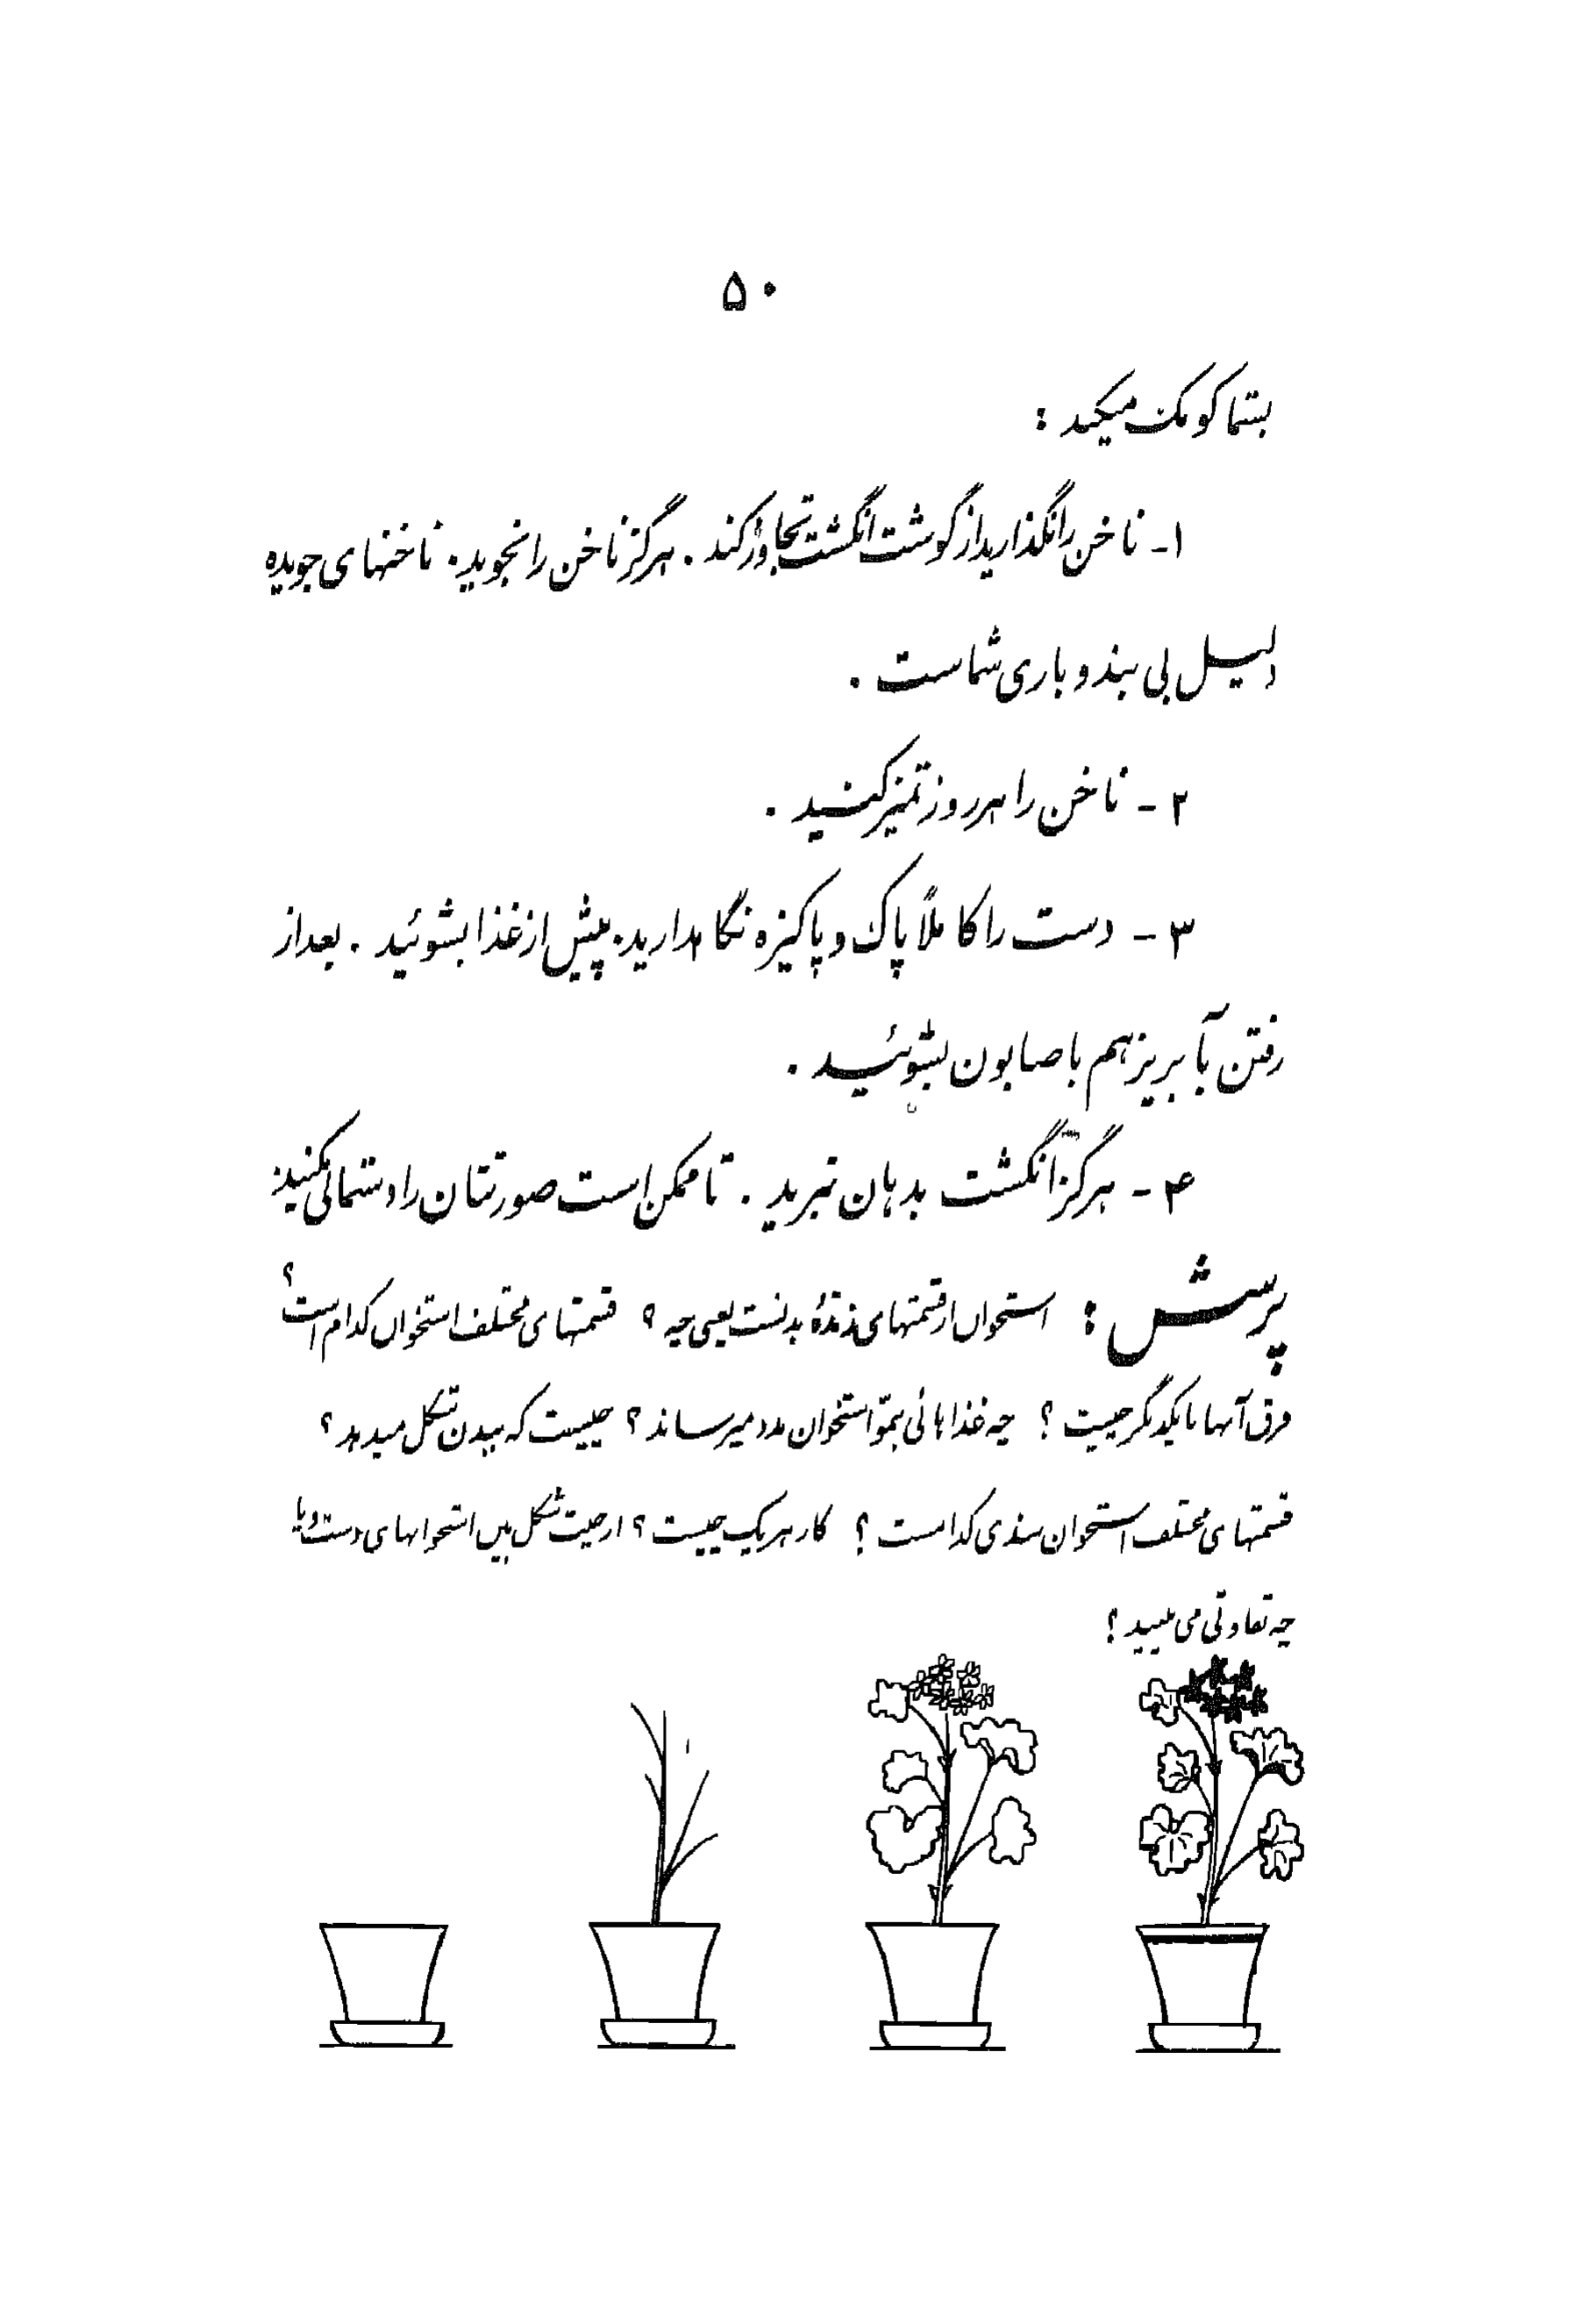 ۵۰
بشما کومک میکند :
۱- ناخن را نگذارید از گوشت انگشت تجاوز کند . هرگز ناخن را نجوید . ناخنهای جویده
دلیل بی بندوباری شماست .
۲ - ناخن را هر روز تمیز کنید .
۳ - دست را کاملاً پاک و پاکیزه نگاهدارید . پیش از غذا بشوئید . بعد از
رفتن بآبریز هم با صابون بشوئید .
۴ - هرگز انگشت بدهان نبرید . تا ممکن است صورتتان را دستمالی نکنید :
پرسش : استخوان از قسمتهای زندهٔ بدنست یعنی چه ؟ قسمتهای مختلف استخوان کدام است ؟
فرق آنها با یکدیگر چیست ؟ چه غذاهائی بنموّ استخوان مدد میرساند ؟ چیست که ببدن شکل میدهد ؟
قسمتهای مختلف استخوان بندی کدامست ؟ کار هر یک چیست ؟ از حیث شکل بین استخوانهای دست و پا
چه تفاوتی می بینید ؟